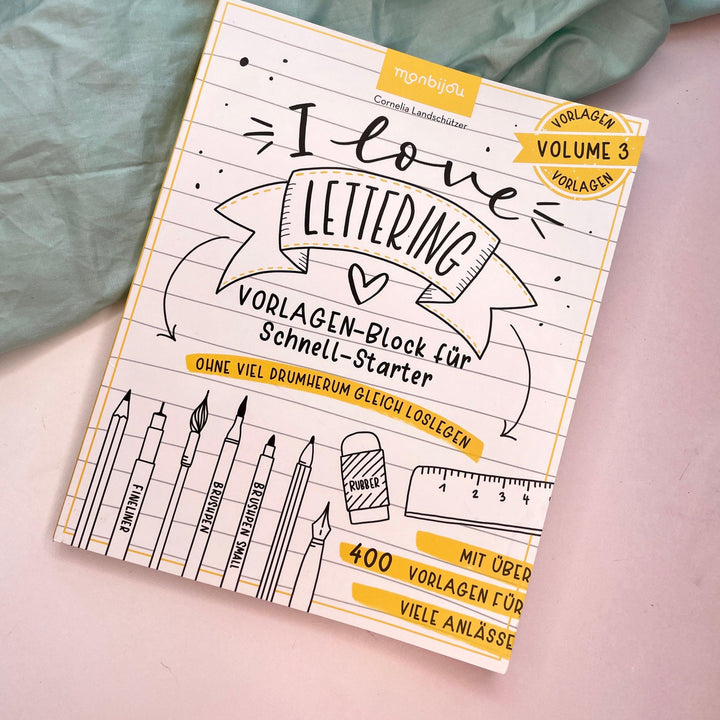 monbijou
Cornelia Landschützer
VORLAGEN
VOLUME 3
VORLAGEN
I love
LETTERING
VORLAGEN-Block für
Schnell-Starter
OHNE VIEL DRUMHERUM GLEICH LOSLEGEN
FINELINER
BRUSHPEN
BRUSHPEN SMALL
RUBBER
1 2 3 4
MIT ÜBER
400 VORLAGEN FÜR
VIELE ANLÄSSE